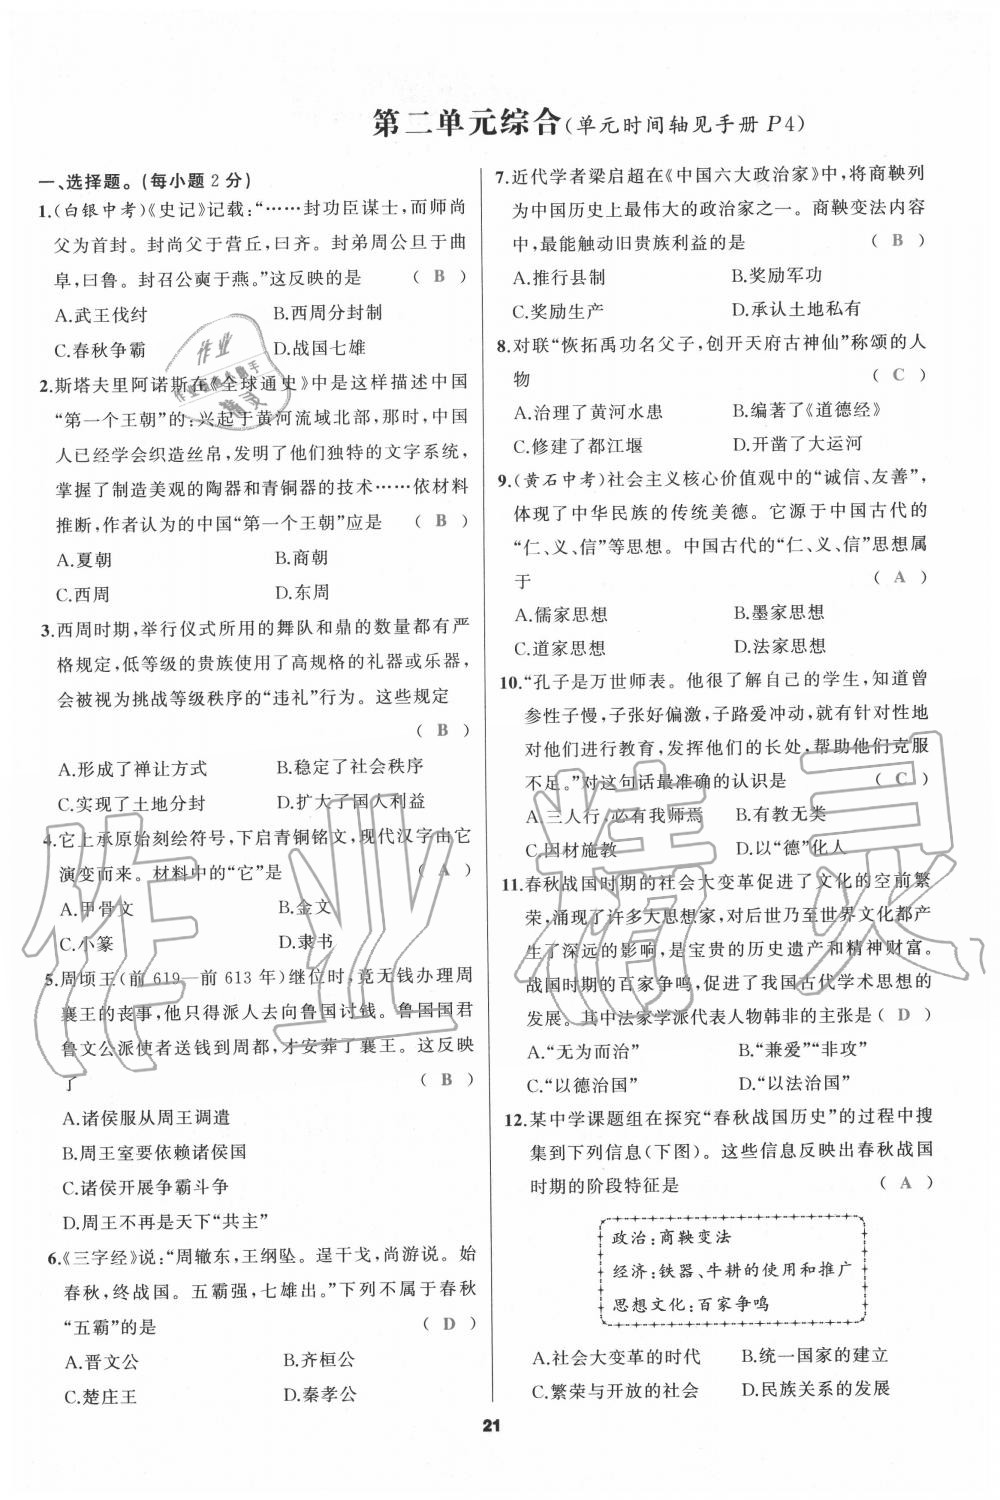 第二单元综合(单元时间轴见手册 P4)
一、选择题。(每小题 2 分)
1.(白银中考)《史记》记载:“……封功臣谋士,而师尚
父为首封。封尚父于营丘,曰齐。封弟周公旦于曲
阜,曰鲁。封召公奭于燕。”这反映的是 ( B )
A.武王伐纣 B.西周分封制
C.春秋争霸 D.战国七雄
2.斯塔夫里阿诺斯在《全球通史》中是这样描述中国
“第一个王朝”的:兴起于黄河流域北部,那时,中国
人已经学会织造丝帛,发明了他们独特的文字系统,
掌握了制造美观的陶器和青铜器的技术……依材料
推断,作者认为的中国“第一个王朝”应是 ( B )
A.夏朝 B.商朝
C.西周 D.东周
3.西周时期,举行仪式所用的舞队和鼎的数量都有严
格规定,低等级的贵族使用了高规格的礼器或乐器,
会被视为挑战等级秩序的“违礼”行为。这些规定
( B )
A.形成了禅让方式 B.稳定了社会秩序
C.实现了土地分封 D.扩大了国人利益
4.它上承原始刻绘符号,下启青铜铭文,现代汉字由它
演变而来。材料中的“它”是 ( A )
A.甲骨文 B.金文
C.小篆 D.隶书
5.周顷王(前 619—前 613 年)继位时,竟无钱办理周
襄王的丧事,他只得派人去向鲁国讨钱。鲁国国君
鲁文公派使者送钱到周都,才安葬了襄王。这反映
了 ( B )
A.诸侯服从周王调遣
B.周王室要依赖诸侯国
C.诸侯开展争霸斗争
D.周王不再是天下“共主”
6.《三字经》说:“周辙东,王纲坠。逞干戈,尚游说。始
春秋,终战国。五霸强,七雄出。”下列不属于春秋
“五霸”的是 ( D )
A.晋文公 B.齐桓公
C.楚庄王 D.秦孝公
7.近代学者梁启超在《中国六大政治家》中,将商鞅列
为中国历史上最伟大的政治家之一。商鞅变法内容
中,最能触动旧贵族利益的是 ( B )
A.推行县制 B.奖励军功
C.奖励生产 D.承认土地私有
8.对联“恢拓禹功名父子,创开天府古神仙”称颂的人
物 ( C )
A.治理了黄河水患 B.编著了《道德经》
C.修建了都江堰 D.开凿了大运河
9.(黄石中考)社会主义核心价值观中的“诚信、友善”,
体现了中华民族的传统美德。它源于中国古代的
“仁、义、信”等思想。中国古代的“仁、义、信”思想属
于 ( A )
A.儒家思想 B.墨家思想
C.道家思想 D.法家思想
10.“孔子是万世师表。他很了解自己的学生,知道曾
参性子慢,子张好偏激,子路爱冲动,就有针对性地
对他们进行教育,发挥他们的长处,帮助他们克服
不足。”对这句话最准确的认识是 ( C )
A.三人行,必有我师焉 B.有教无类
C.因材施教 D.以“德”化人
11.春秋战国时期的社会大变革促进了文化的空前繁
荣,涌现了许多大思想家,对后世乃至世界文化都产
生了深远的影响,是宝贵的历史遗产和精神财富。
战国时期的百家争鸣,促进了我国古代学术思想的
发展。其中法家学派代表人物韩非的主张是 ( D )
A.“无为而治” B.“兼爱”“非攻”
C.“以德治国” D.“以法治国”
12.某中学课题组在探究“春秋战国历史”的过程中搜
集到下列信息(下图)。这些信息反映出春秋战国
时期的阶段特征是 ( A )
政治:商鞅变法
经济:铁器、牛耕的使用和推广
思想文化:百家争鸣
A.社会大变革的时代 B.统一国家的建立
C.繁荣与开放的社会 D.民族关系的发展
21
作业精灵